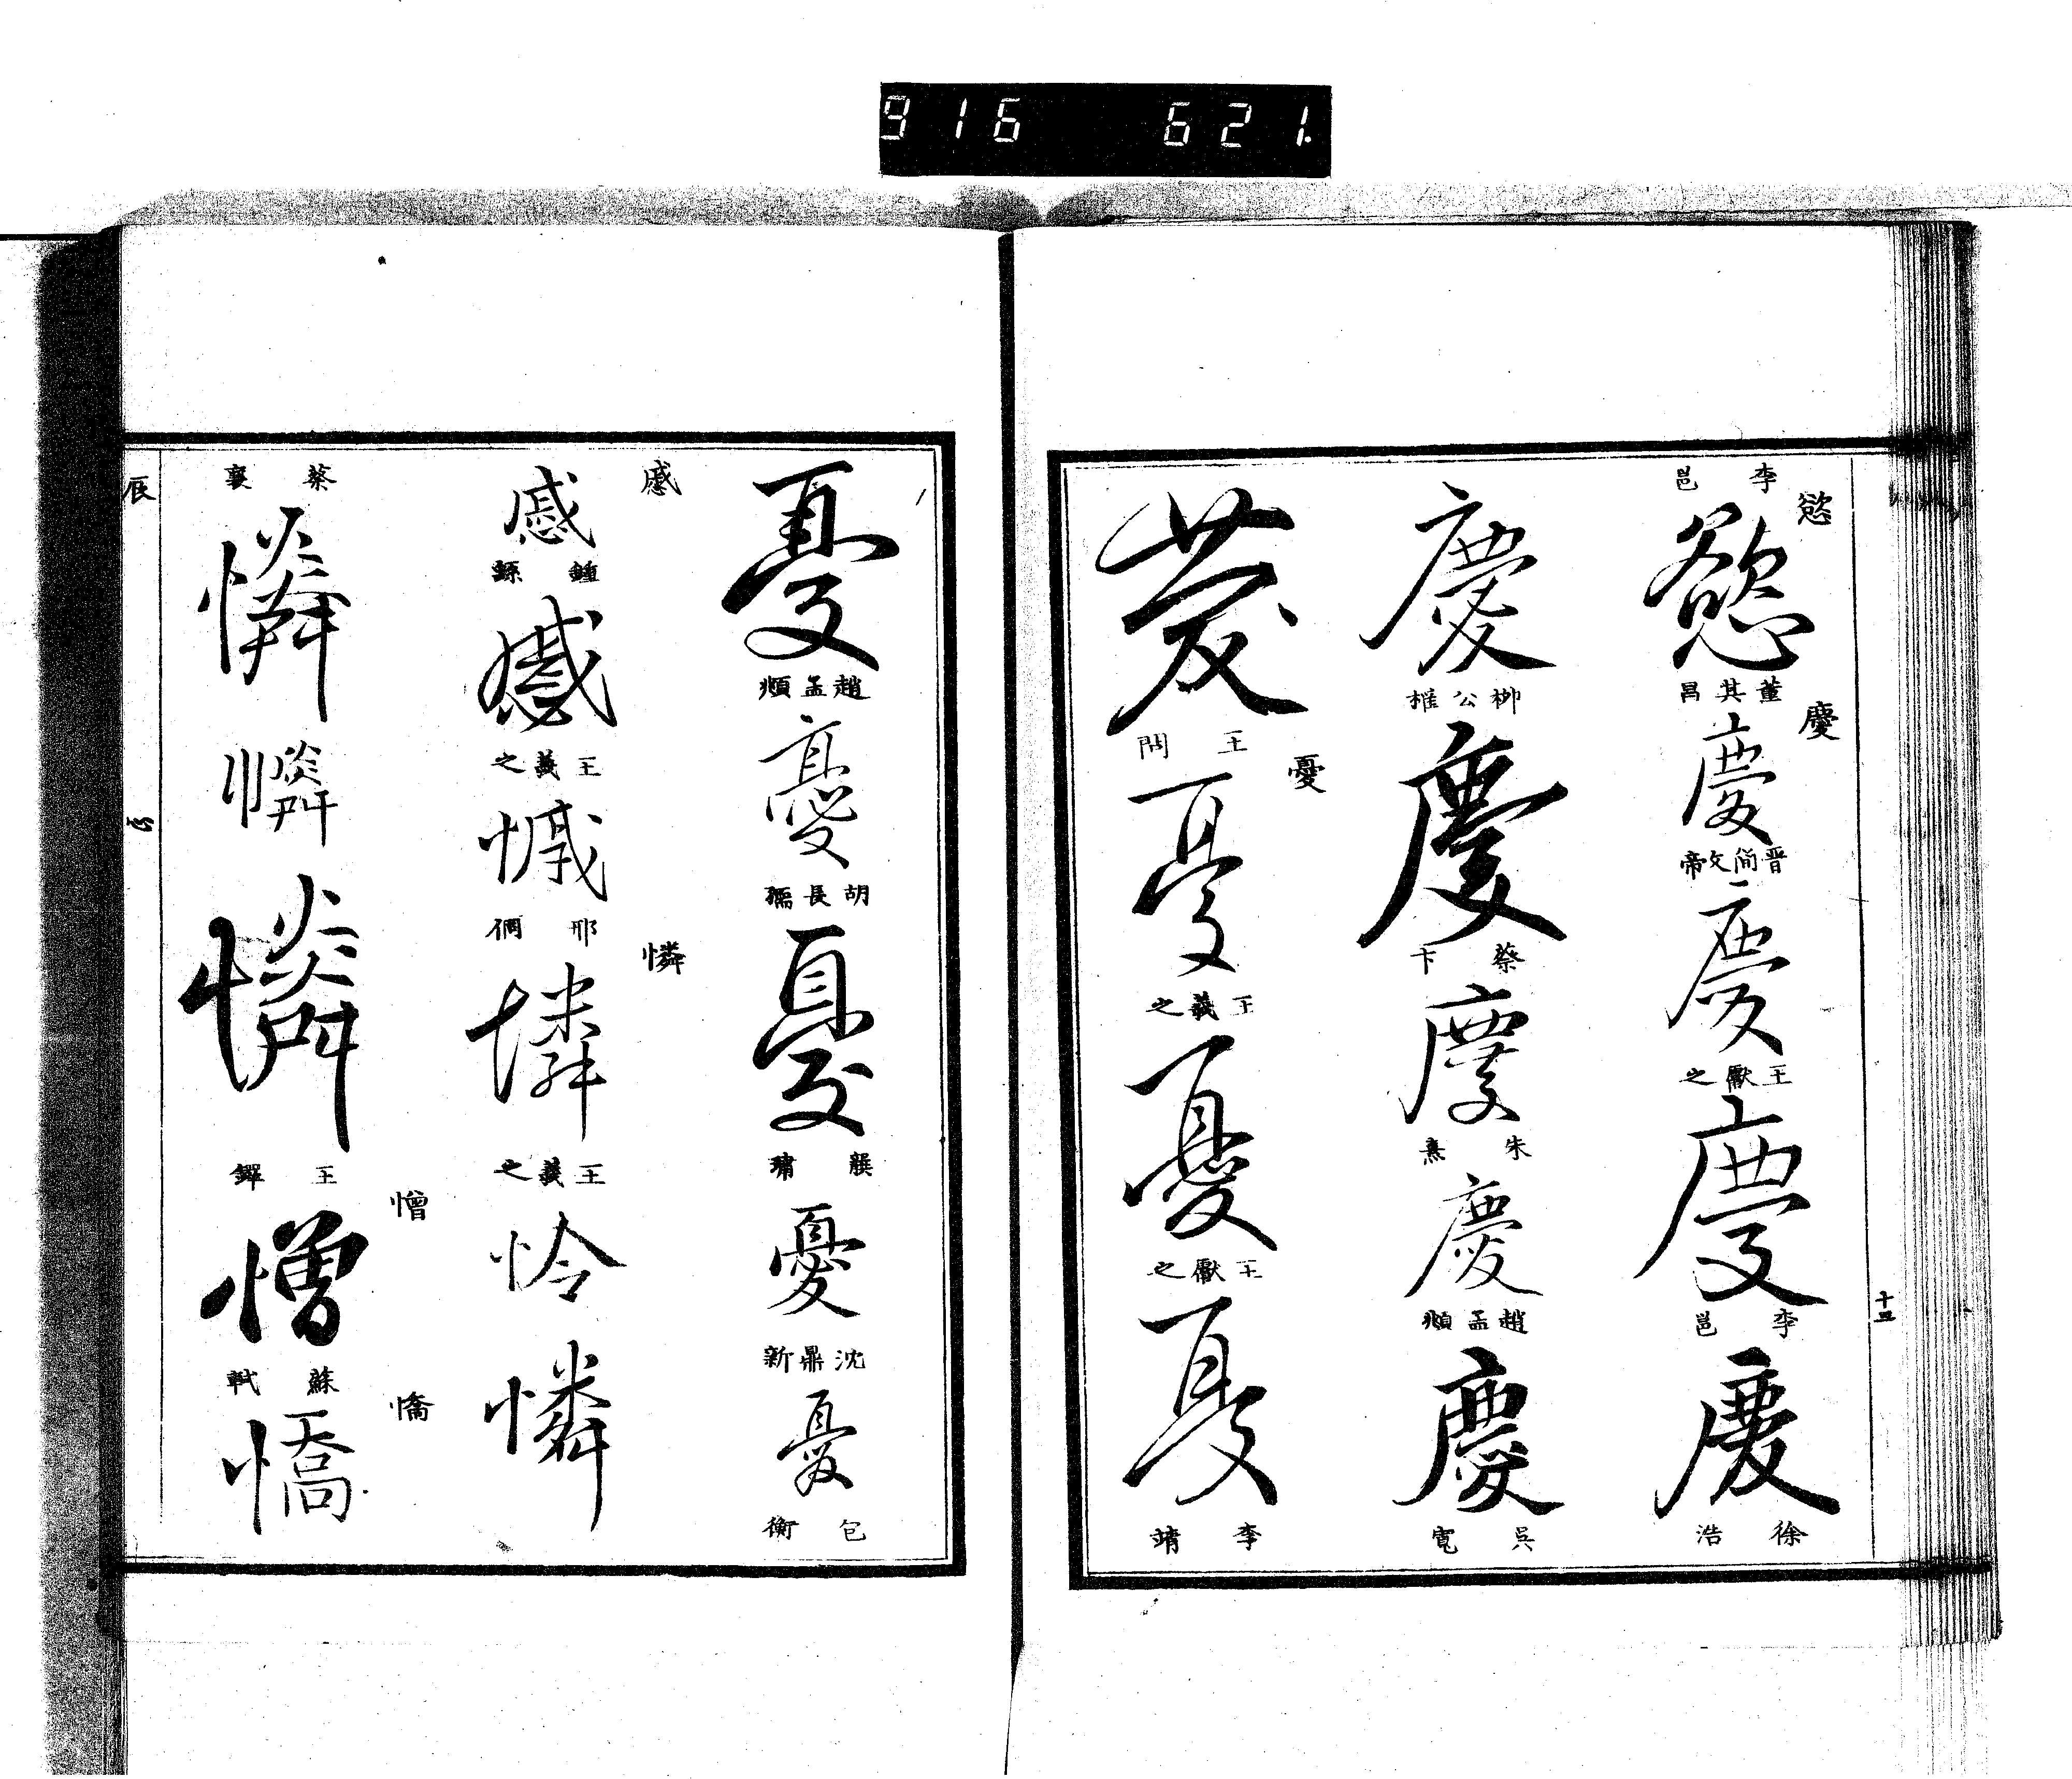 916 621.
慾
李邕
慾
董其昌
慶
慶
晋簡文帝
慶
王獻之
慶
李邕
慶
徐浩
十四
慶
柳公權
慶
蔡卞
慶
朱熹
慶
趙孟頫
慶
吳寬
慶
王問
憂
憂
王羲之
憂
王獻之
憂
李靖
憂
趙孟頫
憂
胡長孺
憂
龔璛
憂
沈鼎新
憂
包衡
慼
慼
鍾繇
慼
王羲之
慽
邢侗
憐
憐
王羲之
怜
憐
蔡襄
憐
憐
憐
王鐸
憎
憎
蘇軾
憍
憍
辰
心